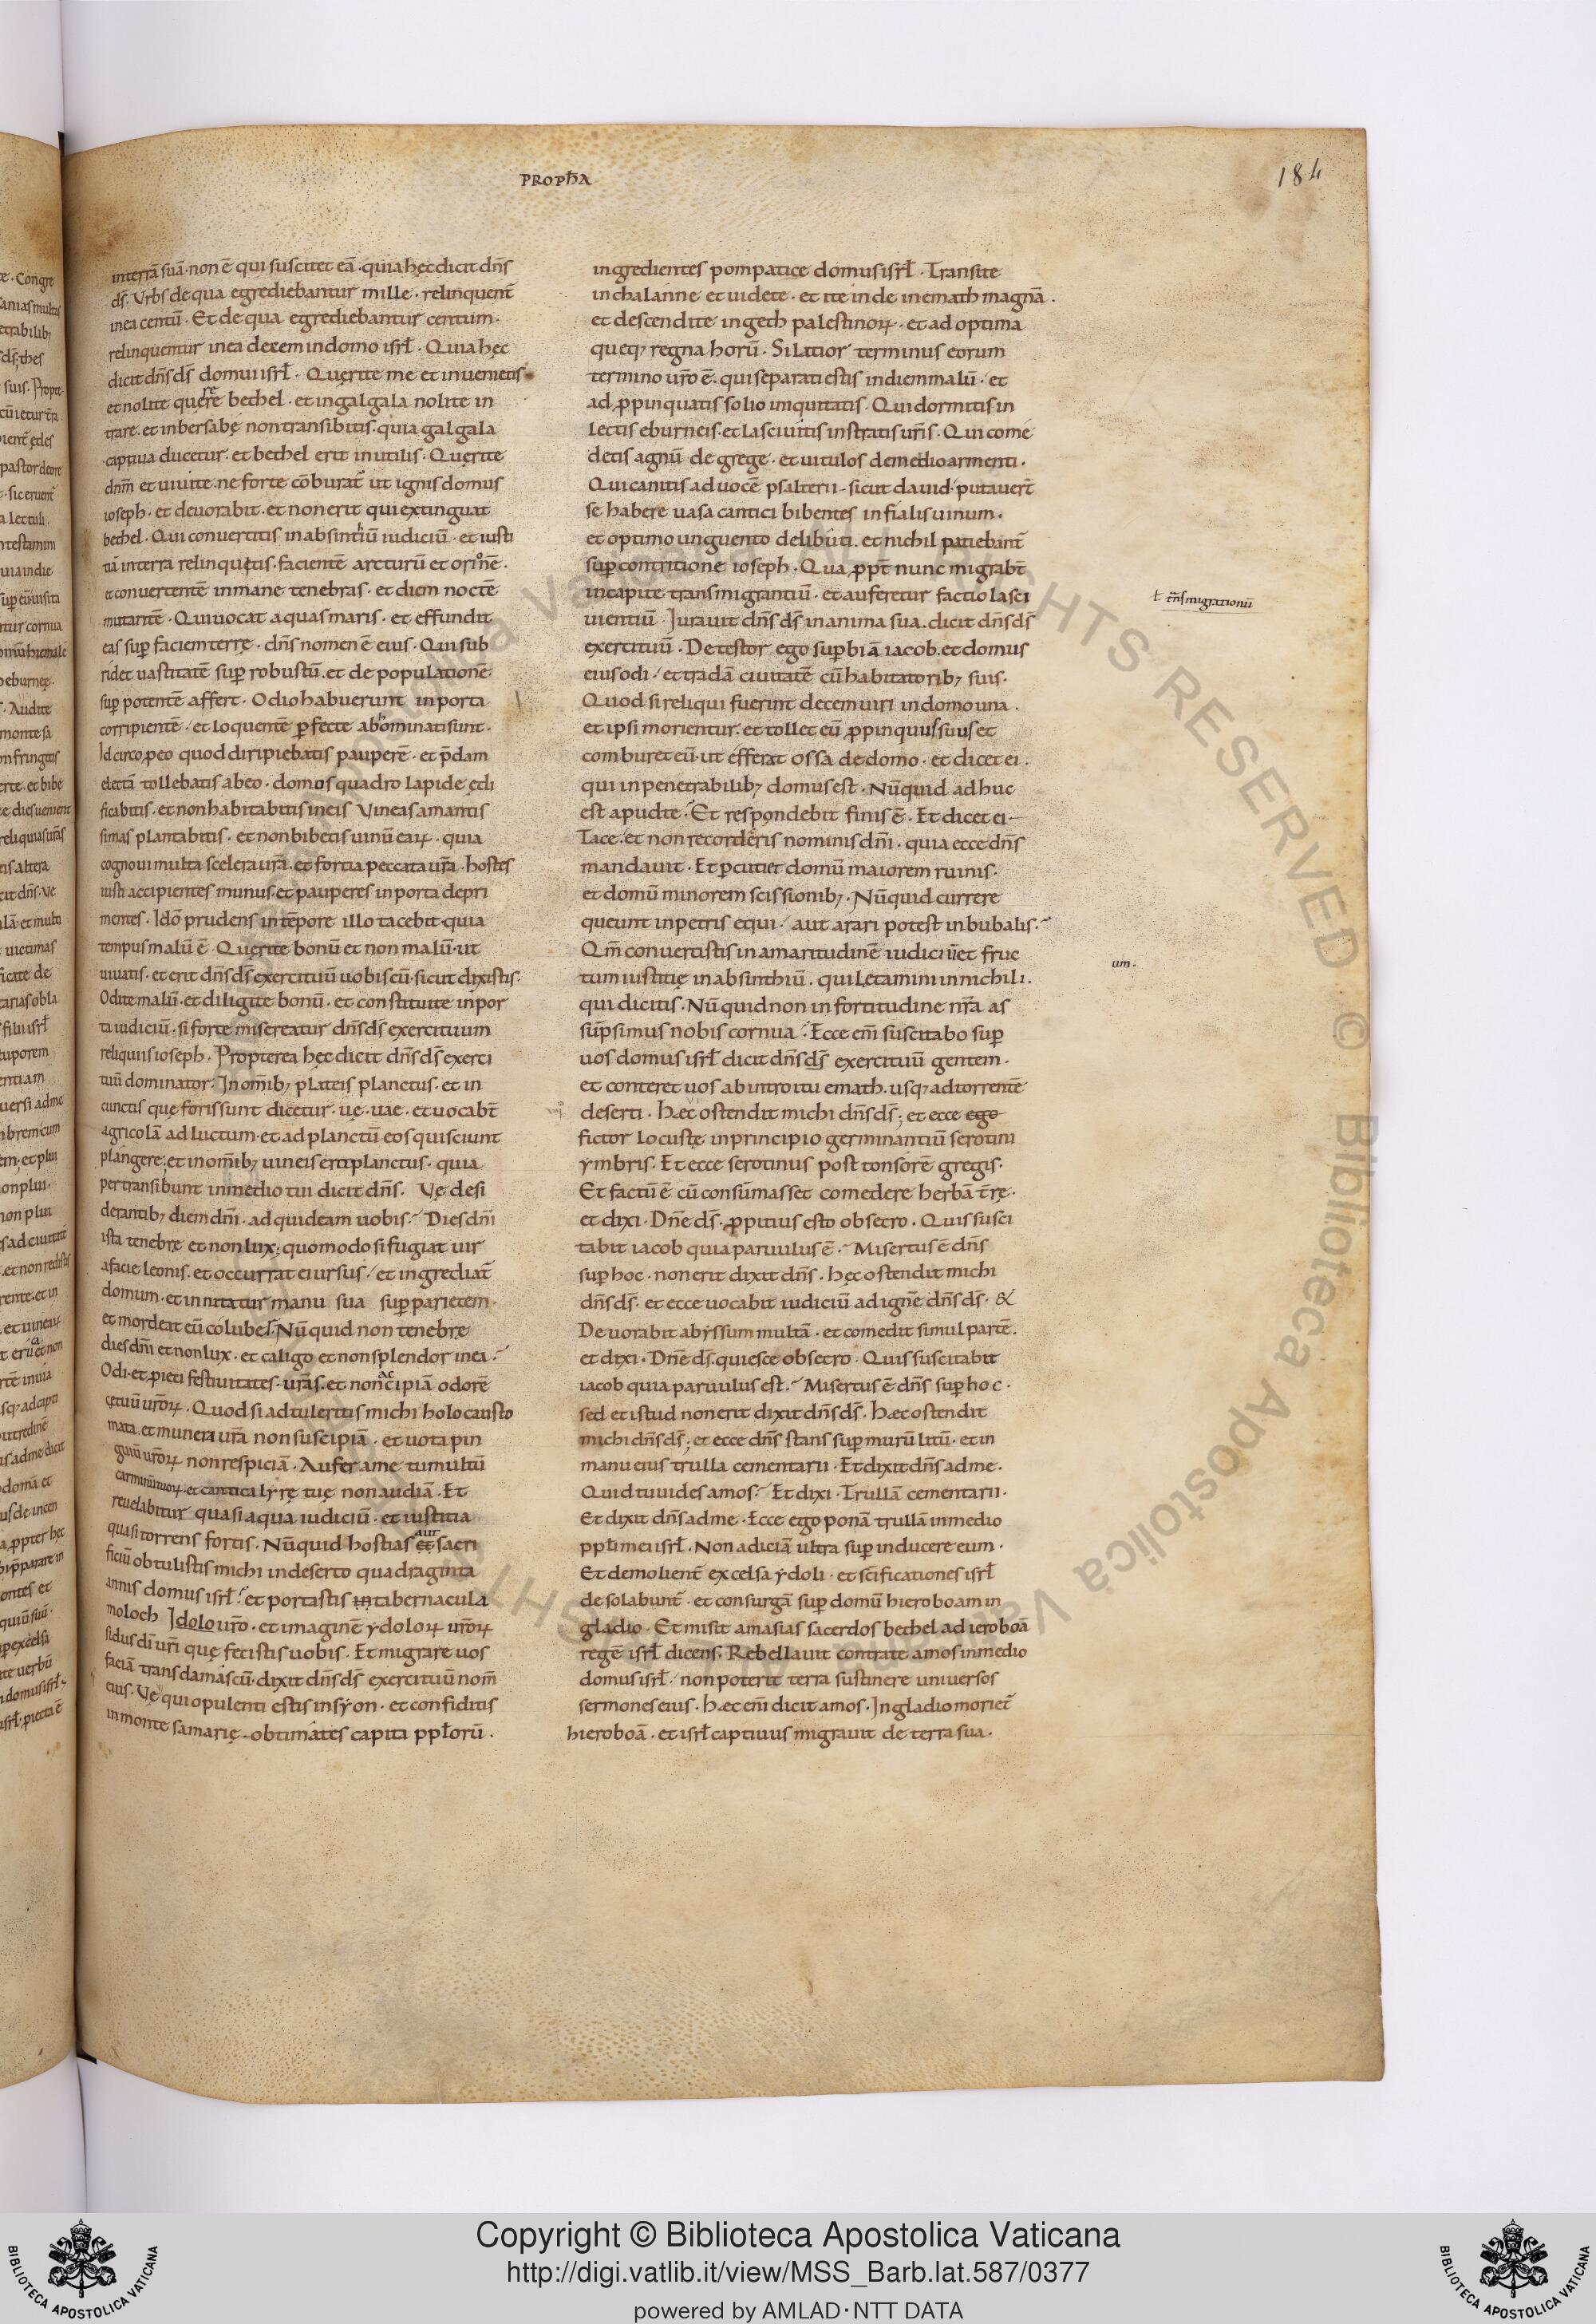 PROPHA
184
interrā suā. non ē qui suscitet eā. quia hęc dicit dn̄s
ds̄. Vrbs de qua egrediebantur mille. relinquent̄
in ea centū. Et de qua egrediebantur centum.
relinquentur in ea decem in domo isrł. Quia hęc
dicit dn̄s ds̄ domui isrł. Quęrite me et inuenietis
et nolite querere bethel. et in galgala nolite in
trare. et in bersabę non transibitis. quia galgala
captiua ducetur. et bethel erit inutilis. Quęrite
dn̄m et uiuite. ne forte cōburat̄ ut ignis domus
ioseph. et deuorabit. et non erit qui extinguat
bethel. Qui conuertitis in absinthiū iudiciū. et iusti
tiā in terra relinquetis. facientē arcturū et orionē.
et conuertentē in mane tenebras. et diem noctē
mutantē. Qui uocat aquas maris. et effundit
eas sup̄ faciem terrę. dn̄s nomen ē eius. Qui sub
ridet uastitatē sup̄ robustū. et depopulationē
sup̄ potentē affert. Odio habuerunt in porta
corripientē. et loquentē ꝑfecte abhominati sunt.
Idcirco ꝓ eo quod diripiebatis pauperē. et p̄dam
electā tollebatis ab eo. domos quadro lapide ędi
ficabitis. et non habitabitis in eis Vineas amantis
simas plantabitis. et non bibetis uinū eaꝝ. quia
cognoui multa scelera ur̄a. et fortia peccata ur̄a. hostes
iusti accipientes munus. et pauperes in porta depri
mentes. Idō prudens in tēpore illo tacebit. quia
tempus malū ē. Quęrite bonū et non malū. ut
uiuatis. et erit dn̄s ds̄ exercituū uobiscū. sicut dixistis.
Odite malū. et diligite bonū. et constituite in por
ta iudiciū. si forte misereatur dn̄s ds̄ exercituum
reliquiis ioseph. Propterea hęc dicit dn̄s ds̄ exerci
tuū dominator. In om̄ibꝫ plateis planctus. et in
cunctis que foris sunt dicetur. uę. uae. et uocabt̄
agricolā ad luctum. et ad planctū eos qui sciunt
plangere; et in om̄ibꝫ uineis erit planctus. quia
pertransibunt in medio tui dicit dn̄s. Vę desi
derantibꝫ diem dn̄i. ad quid eam uobis. Dies dn̄i
ista tenebrę et non lux; quomodo si fugiat uir
a facie leonis. et occurrat ei ursus. et ingrediat̄
domum. et innitatur manu sua sup̄ parietem.
et mordeat eū coluber. Nūquid non tenebrę
dies dn̄i et non lux. et caligo et non splendor in ea.
Odi. et ꝓieci festiuitates ur̄as. et non accipiā odorē
cętuū ur̄oꝝ. Quod si adtuleritis michi holocausto
mata. et munera ur̄a non suscipiā. et uota pin
guiū ur̄oꝝ non respiciā. Aufer a me tumultū
carminū tuoꝝ. et cantica lyrę tuę non audiā. Et
reuelabitur quasi aqua iudiciū. et iustitia
quasi torrens fortis. Nūquid hostias et aut sacri
ficiū obtulistis michi in deserto quadraginta
annis domus isrł. et portastis in tabernacula
moloch Idolo ur̄o. et imaginē ydoloꝝ ur̄oꝝ
sidus di ur̄i quę fecistis uobis. Et migrare uos
faciā trans damascū. dixit dn̄s ds̄ exercituū nom̄
eius. Vę qui opulenti estis in syon. et confiditis
in monte samarię. obtimates capita ppłorū.
ingredientes pompatice domus isrł. Transite
in chalanne et uidete. et ite inde in emath magnā.
et descendite in geth palestinoꝝ. et ad optima
queqꝫ regna horū. Si latior terminus eorum
termino ur̄o ē. qui separati estis in diem malū. et
adꝓpinquatis solio iniquitatis. Qui dormitis in
lectis eburneis. et lasciuitis in stratis ur̄is. Qui come
detis agnū de grege. et uitulos de medio armenti.
Qui canitis ad uocē psalterii. sicut dauid putauer̄t
se habere uasa cantici bibentes in fialis uinum.
et optimo unguento delibuti. et nichil patiebant̄
sup̄ contritione ioseph. Quaꝓpt̄ nunc migrabt̄
in capite transmigrantiū. et auferetur factio lasci
uientiū. Iurauit dn̄s ds̄ in anima sua. dicit dn̄s ds̄
exercituū. Detestor ego sup̄biā iacob. et domus
eius odi. et tradā ciuitatē cū habitatoribꝫ suis.
Quod si reliqui fuerint decem uiri in domo una.
et ipsi morientur. et tollet eū ꝓpinquus suus et
comburet eū. ut efferat ossa de domo. et dicet ei.
qui in penetrabilibꝫ domus est. Nūquid adhuc
est apud te. Et respondebit finis ē. Et dicet ei.
Tace. et non recorderis nominis dn̄i. quia ecce dn̄s
mandauit. Et ꝑcutiet domū maiorem ruinis.
et domū minorem scissionibꝫ. Nūquid currere
queunt in petris equi. aut arari potest in bubalis.
Qm̄ conuertistis in amaritudinē iudiciū et fruc
tum iustitię in absinthiū. qui lętamini in nichili.
qui dicitis. Nūquid non in fortitudine nr̄a as
sūpsimus nobis cornua. Ecce eni̅ suscitabo sup̄
uos domus isrł dicit dn̄s ds̄ exercituū gentem.
et conteret uos ab introitu emath. usqꝫ ad torrentē
deserti. Hæc ostendit michi dn̄s ds̄; et ecce ego
fictor locustę in principio germinantiū serotini
ymbris. Et ecce serotinus post tonsorē gregis.
Et factū ē cū consūmasset comedere herbā t̄rę.
et dixi. Dn̄e ds̄. ꝓpitius esto obsecro. Quis susci
tabit iacob quia paruulus ē. Misertus ē dn̄s
sup̄ hoc. non erit dixit dn̄s. hęc ostendit michi
dn̄s ds̄. et ecce uocabit iudiciū ad ignē dn̄s ds̄. &
Deuorabit abyssum multā. et comedit simul partē.
et dixi. Dn̄e ds̄. quiesce obsecro. Quis suscitabit
iacob quia paruulus est. Misertus ē dn̄s sup̄ hoc.
sed et istud non erit dixit dn̄s ds̄. Hæc ostendit
michi dn̄s ds̄; et ecce dn̄s stans sup̄ murū litū. et in
manu eius trulla cementarii. Et dixit dn̄s ad me.
Quid tu uides amos. Et dixi. Trullā cementarii.
Et dixit dn̄s ad me. Ecce ego ponā trullā in medio
ppłi mei isrł. Non adiciā ultra sup̄inducere eum.
Et demolient̄ excelsa ydoli. et sc̄ificationes isrł
desolabunt̄. et consurgā sup̄ domū hieroboam in
gladio. Et misit amasias sacerdos bethel ad ieroboā
regē isrł dicens. Rebellauit contra te amos in medio
domus isrł. non poterit terra sustinere universos
sermones eius. Hæc eni̅ dicit amos. In gladio moriet̄
hieroboā. et isrł captiuus migrauit de terra sua.
ł trn̄smigrationū
um.
Copyright © Biblioteca Apostolica Vaticana
http://digi.vatlib.it/view/MSS_Barb.lat.587/0377
powered by AMLAD·NTT DATA
BIBLIOTECA APOSTOLICA VATICANA
BIBLIOTECA APOSTOLICA VATICANA